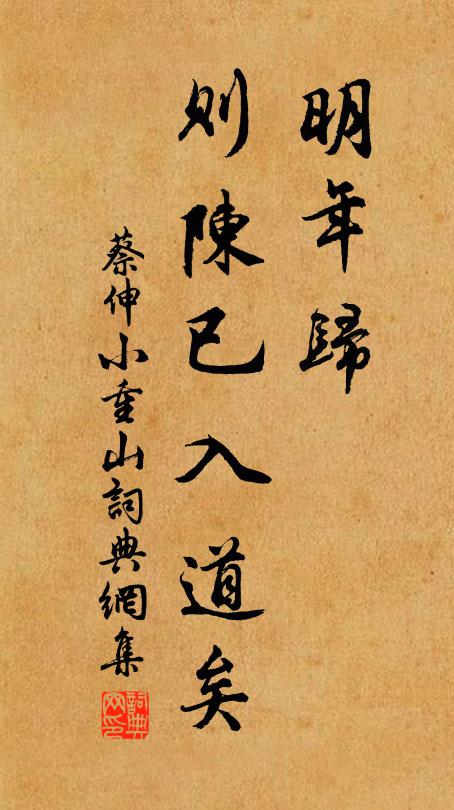 明年歸
則陳已入道矣
蔡伸小重山詞典網集
詞典网印